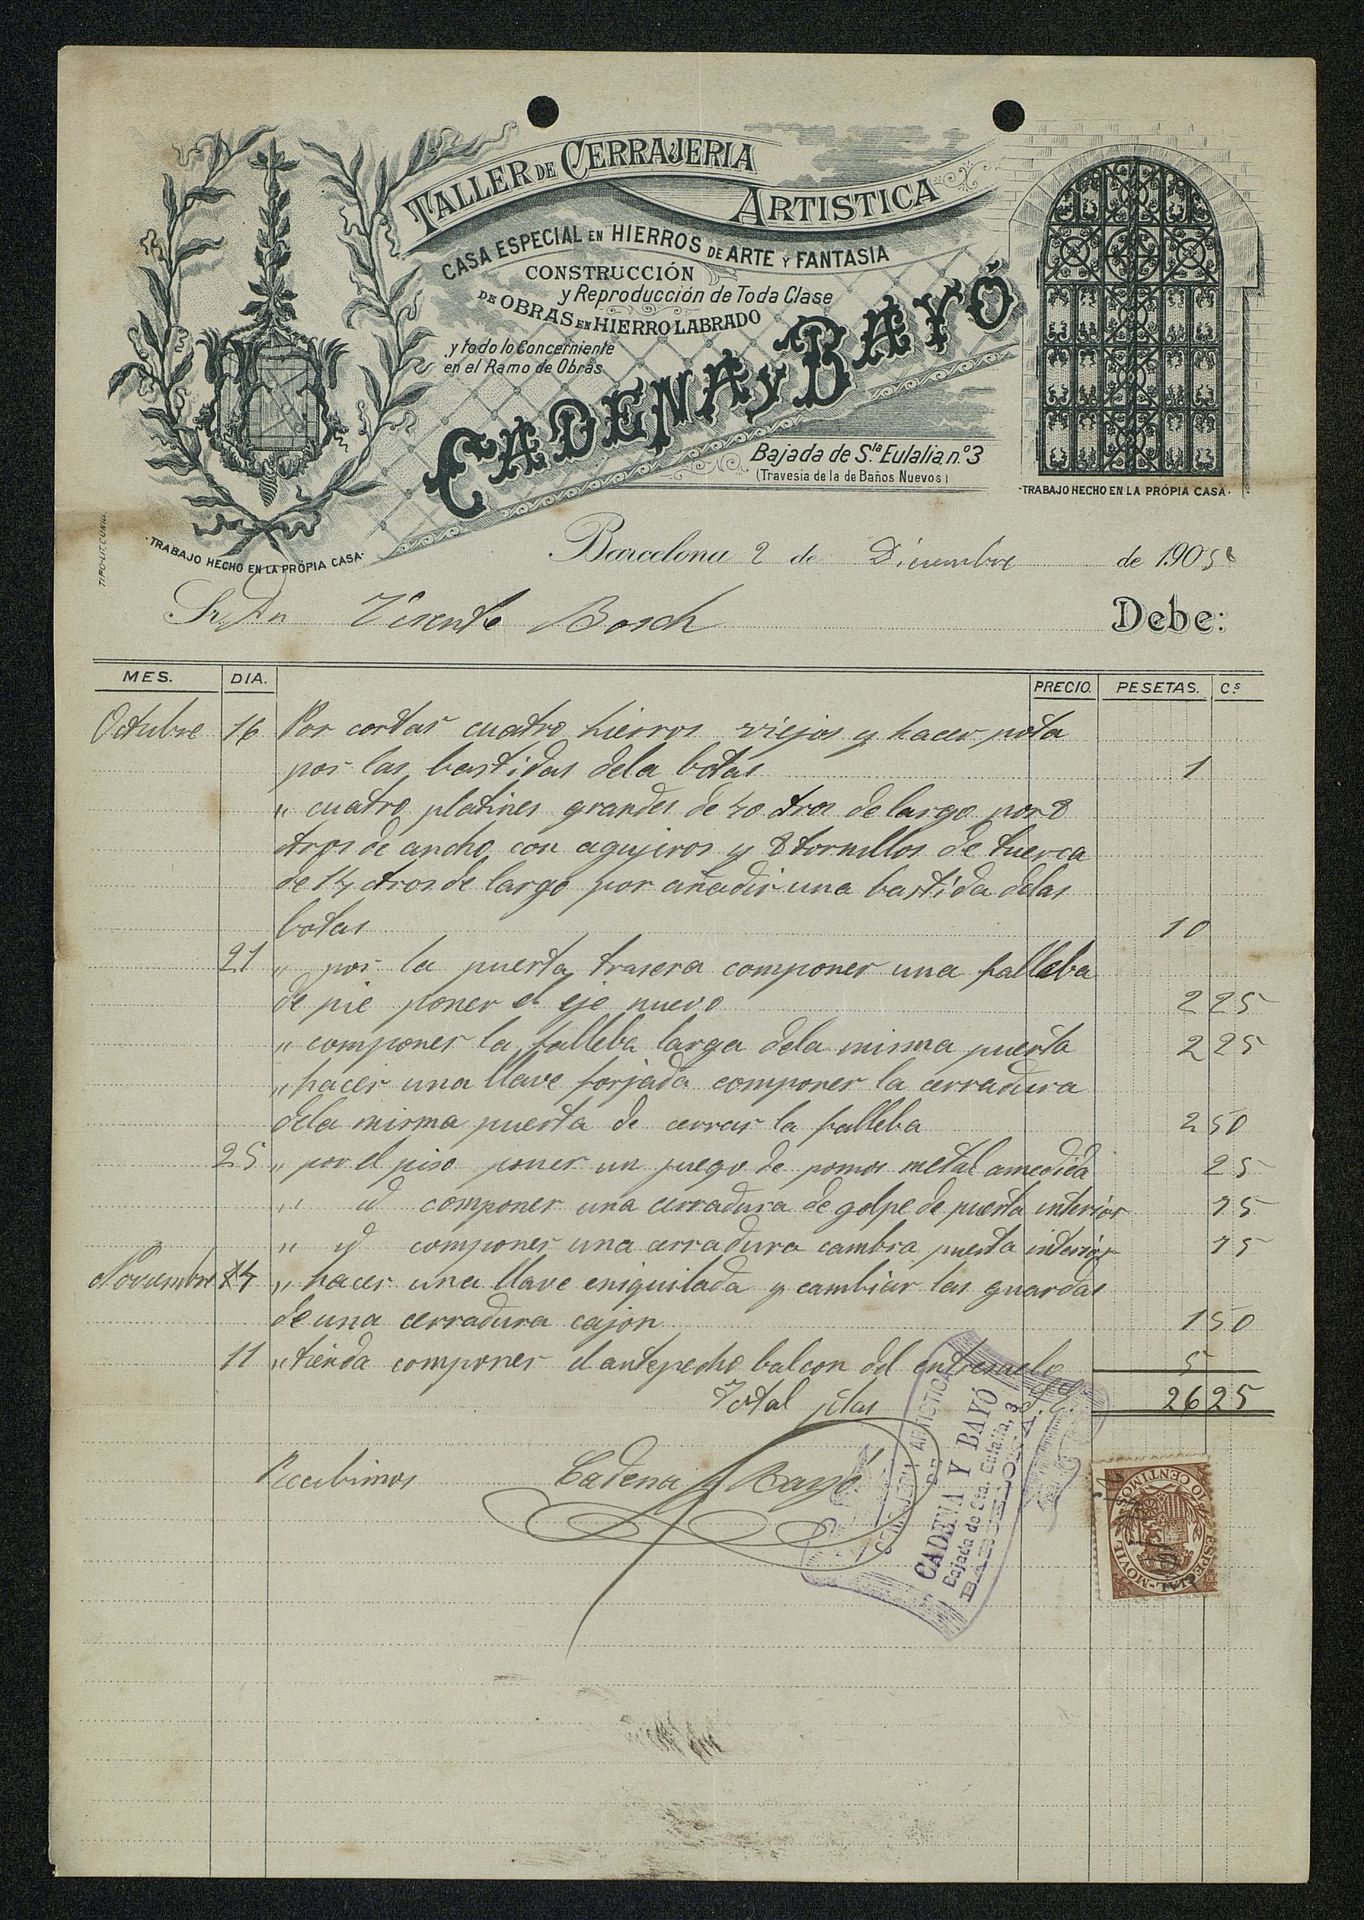 TALLER DE CERRAJERIA
ARTISTICA
CASA ESPECIAL EN HIERROS DE ARTE Y FANTASIA
CONSTRUCCIÓN
y Reproducción de Toda Clase
DE OBRAS EN HIERRO LABRADO
y todo lo Concerniente
en el Ramo de Obras
CADENA Y BAYÓ
Bajada de Sta. Eulalia, n.º 3
(Travesia de la de Baños Nuevos)
TRABAJO HECHO EN LA PRÓPIA CASA.
TRABAJO HECHO EN LA PRÓPIA CASA.
Barcelona 2 de Diciembre de 1905
Sr. Dn Vicente Bosch Debe:
MES. DIA. PRECIO. PESETAS. Cs
Octubre 16 Por cortar cuatro hierros viejos y hacer pota
por las bastidas dela botas 1
" cuatro platines grandes de 40 ctros de largo por 8
ctros de ancho con agujeros y 8 tornillos de tuerca
de 14 ctros de largo por añadir una bastida delas
botas 10
21 " por la puerta trasera componer una falleba
de pie poner el eje nuevo 2 25
" componer la falleba larga dela misma puerta 2 25
" hacer una llave forjada componer la cerradura
dela misma puerta de cerrar la falleba 2 50
25 " por el piso poner un juego de pomos metal amedida 25
" id componer una cerradura de golpe de puerta interior 75
" id componer una cerradura cambra puerta interior 75
Noviembre 4 " hacer una llave eniquilada y cambiar las guardas
de una cerradura cajon 1 50
11 " tienda componer el antepecho balcon del entresuelo 5
Total ptas 26 25
Recibimos Cadena y Bayó
CERRAJERIA ARTISTICA
DE
CADENA Y BAYÓ
Bajada de Sta. Eulalia, 3
BARCELONA
ESPECIAL-MOVIL
10 CENTIMOS